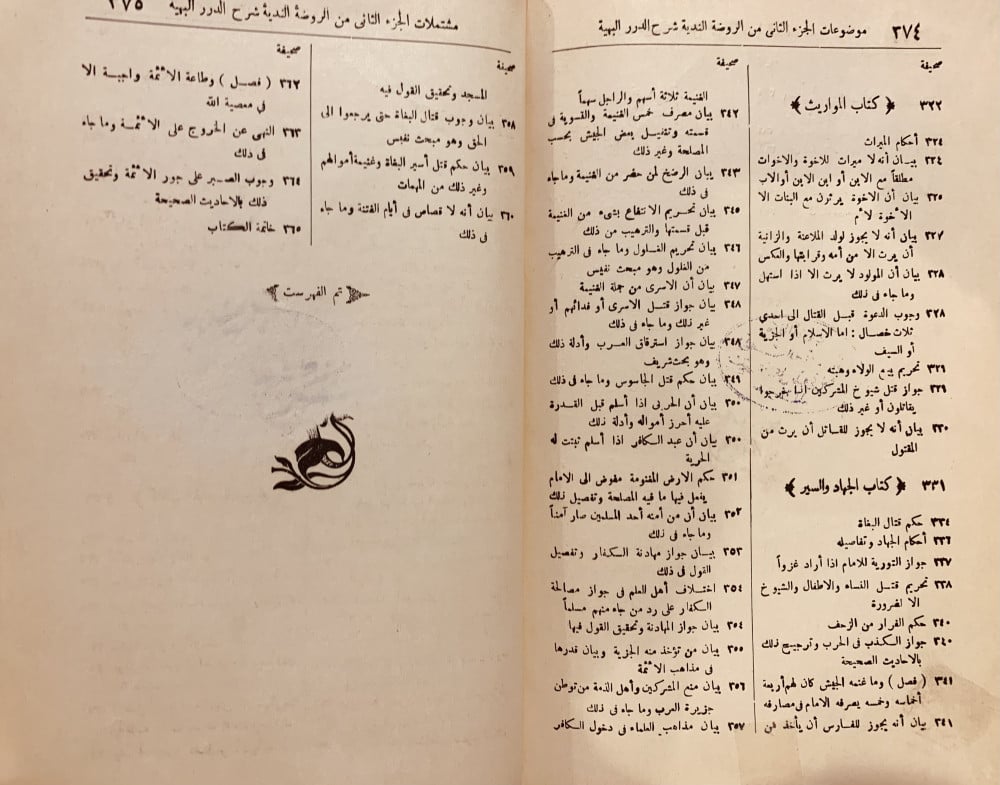 ٣٧٤ موضوعات الجزء الثانى من الروضة الندية شرح الدرر البهية
صحيفة
٣٢٢ ﴿ كتاب المواريث ﴾
٣٢٤ أحكام الميراث
٣٢٤ بيان أنه لا ميراث للاخوة والاخوات
مطلقاً مع الابن أو ابن الابن أو الاب
٣٢٥ بيان أن الاخوة يرثون مع البنات الا
الاخوة لأم
٣٢٧ بيان أنه لا يجوز لولد الملاعنة والزانية
أن يرث الا من أمه وقرابتها والعكس
٣٢٨ بيان أن المولود لا يرث الا اذا استهل
وما جاء فى ذلك
٣٢٨ وجوب الدعوة قبل القتال الى احدى
ثلاث خصال : اما الاسلام أو الجزية
أو السيف
٣٢٩ تحريم بيع الولاء وهبته
٣٢٩ جواز قتل شيوخ المشركين
يقاتلون أو غير ذلك
٣٣٠ بيان أنه لا يجوز للقاتل أن يرث من
المقتول
٣٣١ ﴿ كتاب الجهاد والسير ﴾
٣٣٤ حكم قتال البغاة
٣٣٦ أحكام الجهاد وتفاصيله
٣٣٧ جواز التورية للامام اذا أراد غزواً
٣٣٨ تحريم قتل النساء والاطفال والشيوخ
الا لضرورة
٣٤٠ حكم الفرار من الزحف
٣٤٠ جواز الكذب فى الحرب وترجيح ذلك
بالاحاديث الصحيحة
٣٤١ ( فصل ) وما غنمه الجيش كان لهم أربعة
أخماسه وخمسه يصرفه الامام فى مصارفه
٣٤١ بيان أنه يجوز للفارس أن يأخذ من
صحيفة
الغنيمة ثلاثة أسهم والراجل سهماً
٣٤٢ بيان مصرف خمس الغنيمة والتسوية فى
قسمته وتنفيل بعض الجيش بحسب
المصلحة وغير ذلك
٣٤٣ بيان الرضخ لمن حضر من الغنيمة وما جاء
فى ذلك
٣٤٥ بيان تحريم الانتفاع بشىء من الغنيمة
قبل قسمتها والترهيب من ذلك
٣٤٦ بيان تحريم الغلول وما جاء فى الترهيب
من الغلول وهو مبحث نفيس
٣٤٧ بيان أن الاسرى من جملة الغنيمة
٣٤٨ بيان جواز قتل الاسرى أو فدائهم أو
غير ذلك وما جاء فى ذلك
٣٤٨ بيان جواز استرقاق العرب وأدلة ذلك
وهو بحث شريف
٣٤٩ بيان حكم قتل الجاسوس وما جاء فى ذلك
٣٥٠ بيان أن الحربى اذا أسلم قبل القدرة
عليه أحرز أمواله وأدلة ذلك
٣٥٠ بيان أن عبد الكافر اذا أسلم ثبتت له
الحرية
٣٥١ حكم الارض المغنومة مفوض الى الامام
يفعل فيها ما فيه المصلحة وتفصيل ذلك
٣٥٢ بيان أن من أمنه أحد المسلمين صار آمناً
وما جاء فى ذلك
٣٥٣ بيان جواز مهادنة الكفار وتفصيل
القول فى ذلك
٣٥٤ اختلاف أهل العلم فى جواز مصالحة
الكفار على رد من جاء منهم مسلماً
٣٥٤ بيان جواز المهادنة وتحقيق القول فيها
٣٥٥ بيان من تؤخذ منه الجزية وبيان قدرها
فى مذاهب الأئمة
٣٥٦ بيان منع المشركين وأهل الذمة من توطن
جزيرة العرب وما جاء فى ذلك
٣٥٧ بيان مذاهب العلماء فى دخول الكافر
مشتملات الجزء الثانى من الروضة الندية شرح الدرر البهية ٣٧٥
صحيفة
المسجد وتحقيق القول فيه
٣٥٨ بيان وجوب قتال البغاة حتى يرجعوا الى
الحق وهو مبحث نفيس
٣٥٩ بيان حكم قتل أسير البغاة وغنيمة أموالهم
وغير ذلك من المهمات
٣٦٠ بيان أنه لا قصاص فى أيام الفتنة وما جاء
فى ذلك
صحيفة
٣٦٢ ( فصل ) وطاعة الأئمة واجبة الا
فى معصية الله
٣٦٣ النهى عن الخروج على الأئمة وما جاء
فى ذلك
٣٦٤ وجوب الصبر على جور الأئمة وتحقيق
ذلك بالاحاديث الصحيحة
٣٦٥ خاتمة الكتاب
تم الفهرست